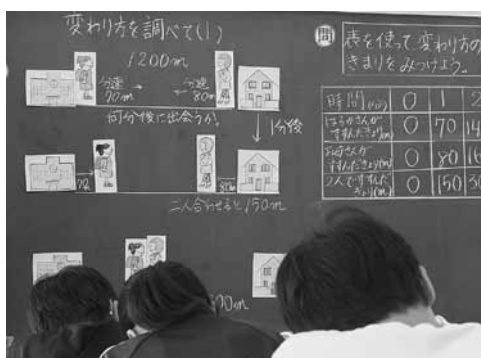 変わり方を調べて(1)
1200m
分速
70m
分速
80m
何分後に出会うか。
1分後
70
80
二人合わせると150m
問
表を使って変わり方の
きまりをみつけよう。
時間(分) 0 1 2
はるかさんが
すすんだきょり(m) 0 70 14
お母さんが
すすんだきょり(m) 0 80 16
2人ですすんだ
きょり(m) 0 150 30